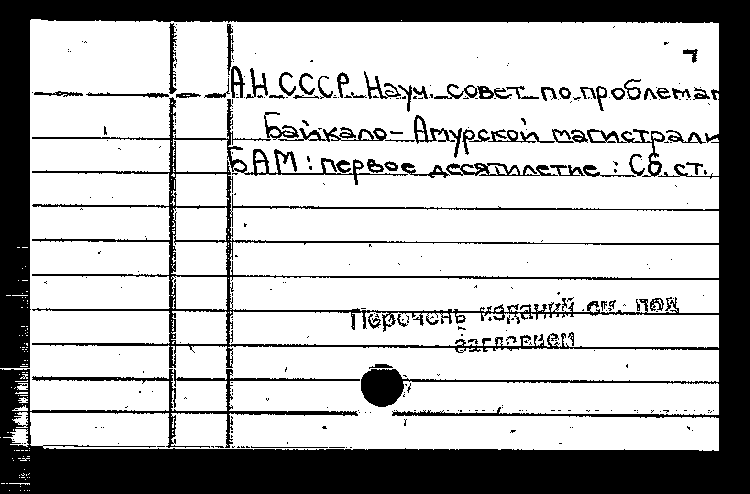 7
АН СССР. Науч. совет по проблемам
Байкало-Амурской магистрали
БАМ : первое десятилетие : Сб. ст.
Перечень изданий см. под
заглавием